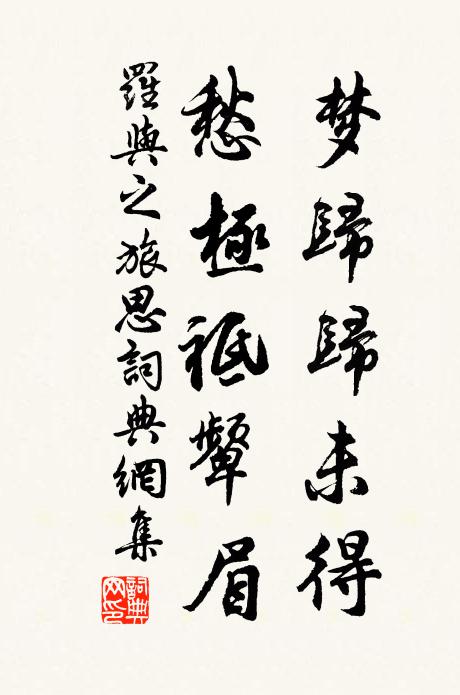 梦歸歸未得
愁極祇颦眉
羅與之旅思詞典網集
詞典網印